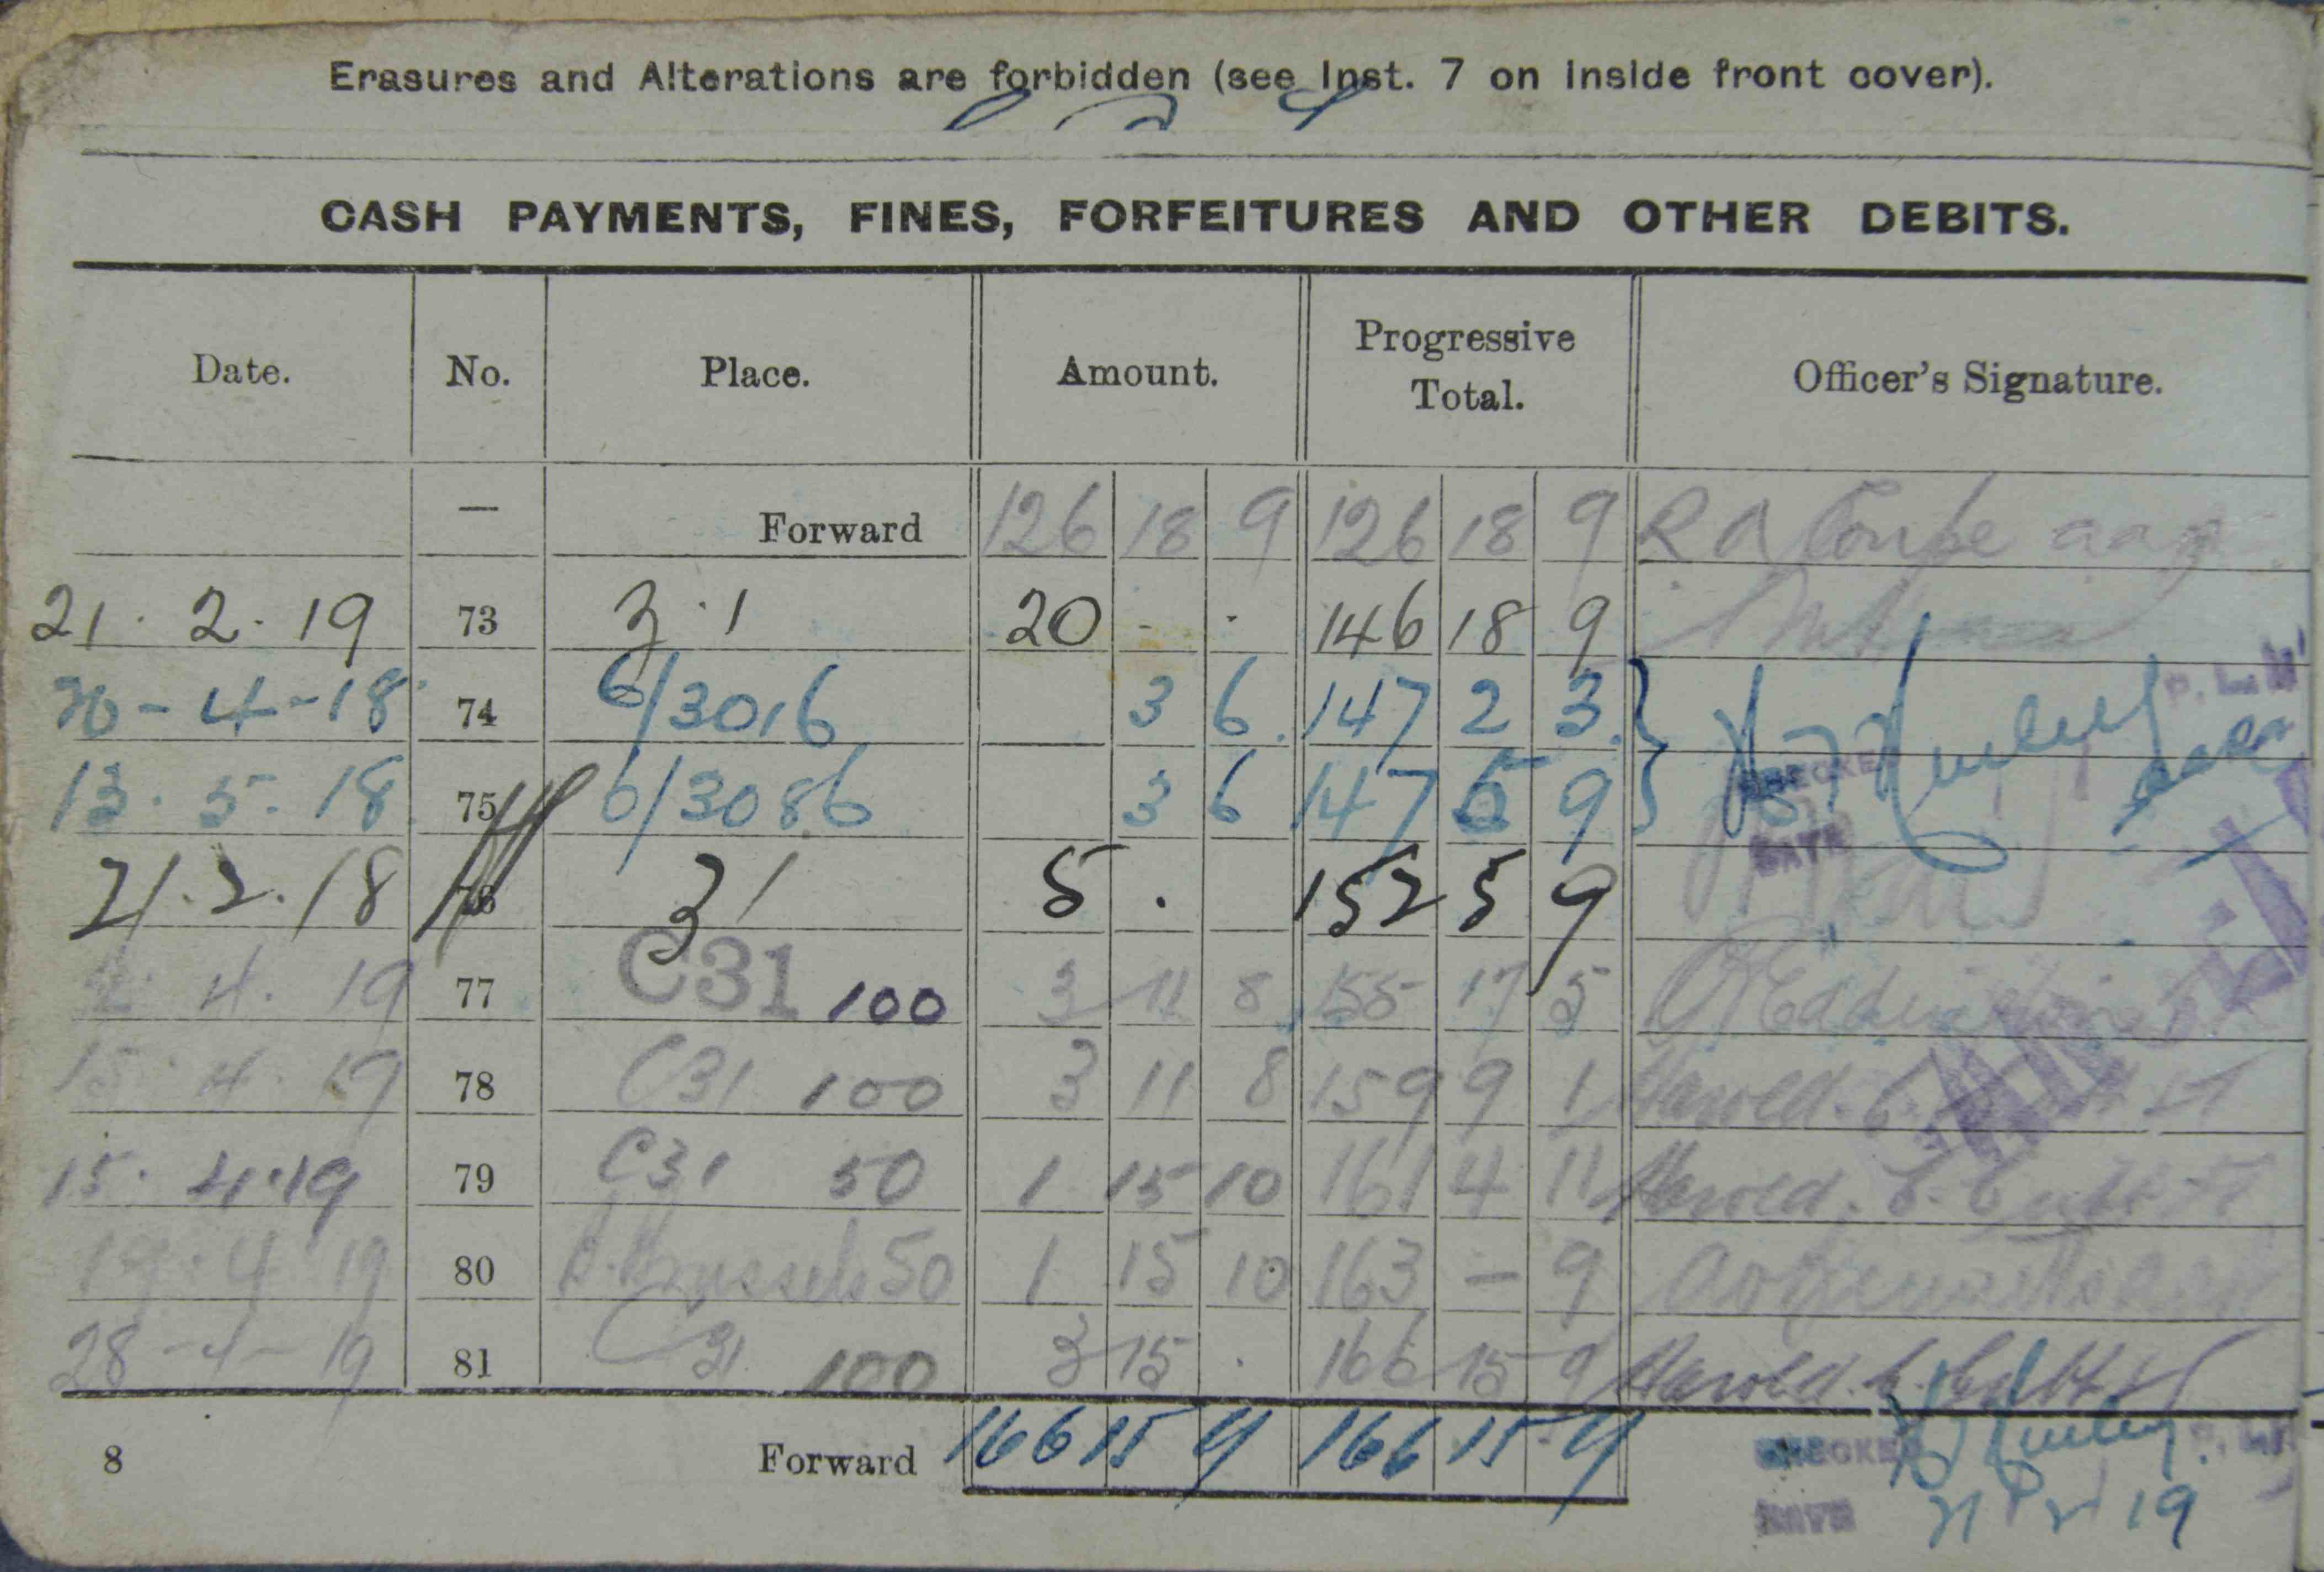 Erasures and Alterations are forbidden (see Inst. 7 on inside front cover).
CASH PAYMENTS, FINES, FORFEITURES AND OTHER DEBITS.
Date. No. Place. Amount. Progressive Total. Officer's Signature.
— Forward 126 18 9 126 18 9 R A
21. 2. 19 73 3.1 20 - . 146 18 9
-4-18 74 6/3016 3 6. 147 2 3
13. 5. 18 75 6/3086 3 6 147 5 9 CHECKED
21.2.18 76 31 5 . 152 5 9 DATE
4. 19 77 C31 100 3 11 8 155 17 5
15. 4. 19 78 C31 100 3 11 8 159 9 1 Harold.
15. 4.19 79 C31 50 1 15 10 161 4 11 Harold.
19.4 19 80 Brussels 50 1 15 10 163 — 9
28-4-19 81 C31 100 3 15 . 166 15 9 Harold.
8 Forward 166 15 9 166 15 9 CHECKED
DATE 19